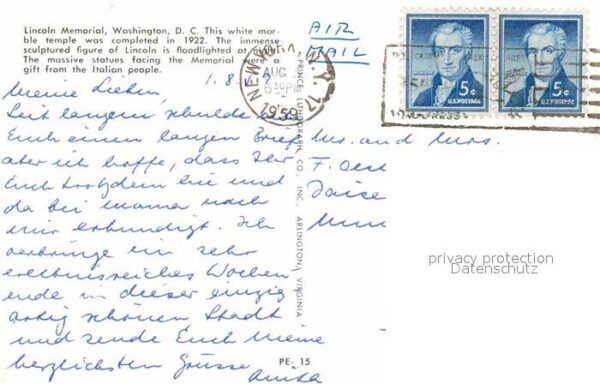 Lincoln Memorial, Washington, D. C. This white mar-
ble temple was completed in 1922. The immense
sculptured figure of Lincoln is floodlighted at
The massive statues facing the Memorial were a
gift from the Italian people.
AIR
MAIL
NEW YORK, N.Y.
AUG
630PM
1959
5¢
U.S. POSTAGE
5¢
U.S. POSTAGE
1.8.
Meine Lieben,
Seit langem schulde
Euch einen langen Brief
aber ich hoffe, dass Ihr
Euch trotzdem hie und
da bei Mama nach
mir erkundigt. Ich
verbringe ein sehr
erlebnisreiches Wochen-
ende in dieser einzig
artig schönen Stadt
und sende Euch meine
herzlichsten Grüsse
Anita
PRINCE LITHOGRAPH CO., INC., ARLINGTON, VIRGINIA
PE- 15
Mr. and Mrs.
F. Oest
privacy protection
Datenschutz